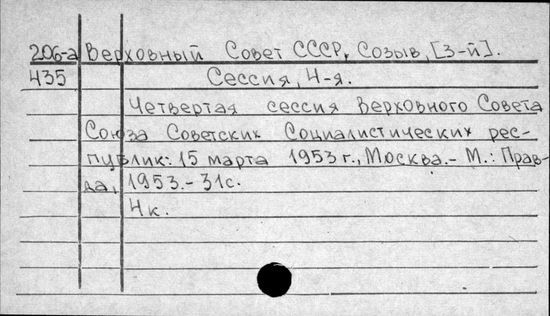 206-а Верховный Совет СССР, Созыв, [3-й].
435 Сессия, 4-я.
Четвертая сессия Верховного Совета
Союза Советских Социалистических рес-
публик: 15 марта 1953 г., Москва.- М.: Прав-
да, 1953.- 31с.
4к.